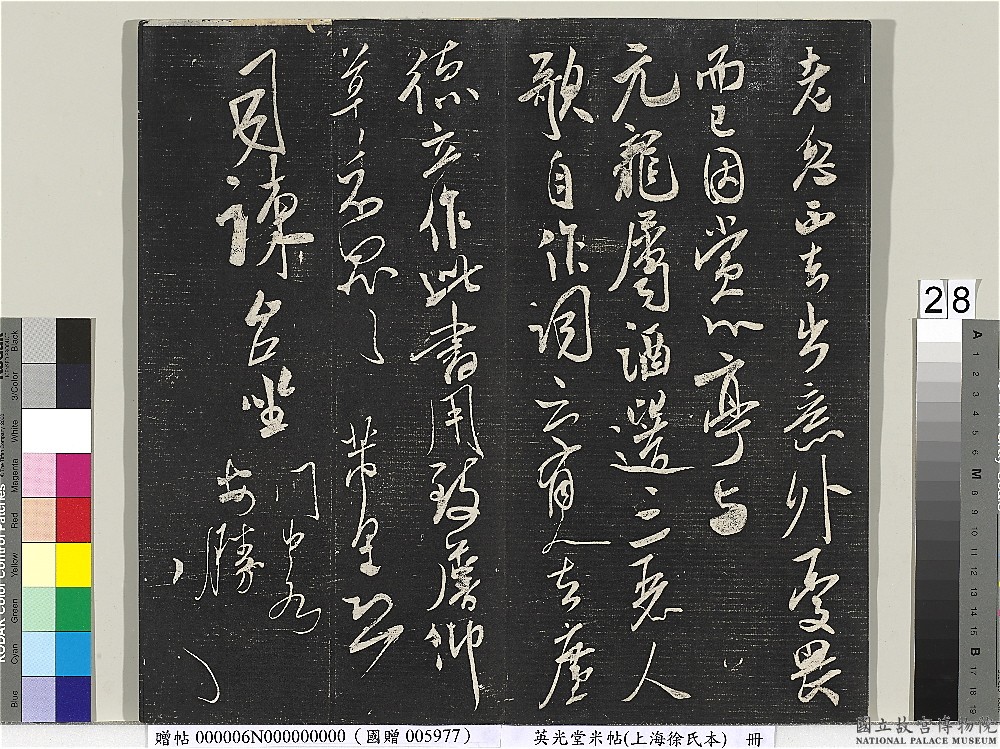 老愁西去出意外憂畏
而已因賞心亭與
元龍屬酒道三惡人
歌自作詞云有人去處
德立作此書用致詹仰
草〻不罪〻 芾皇恐
司諫台坐
門中各
安勝
28
贈帖 000006N000000000 (國贈 005977)
英光堂米帖(上海徐氏本) 冊
國立故宮博物院
NATIONAL PALACE MUSEUM
KODAK Color Control Patches
Blue Cyan Green Yellow Red Magenta White 3/Color Black
A 1 2 3 4 5 6 M 8 9 10 11 12 13 14 15 B 17 18 19